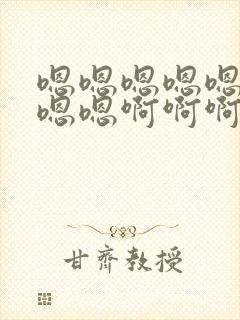 嗯嗯嗯嗯嗯
嗯嗯啊啊啊
甘齊教授